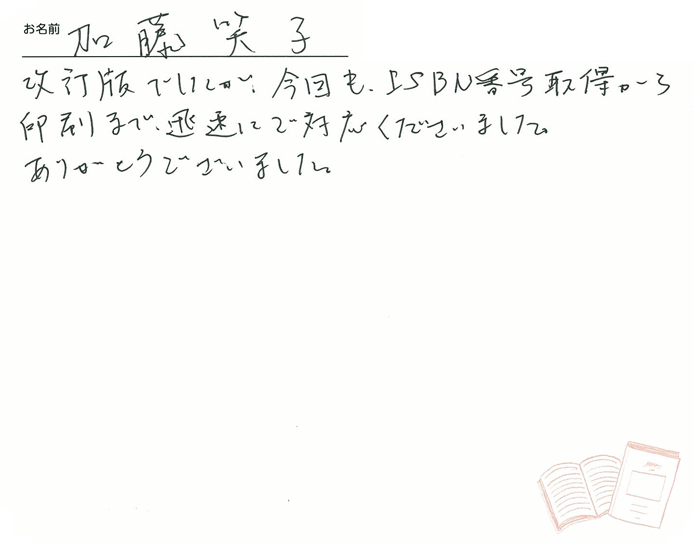 お名前 加藤笑子
改訂版でしたが、今回も、ISBN番号取得から
印刷まで、迅速にご対応くださいました。
ありがとうございました。